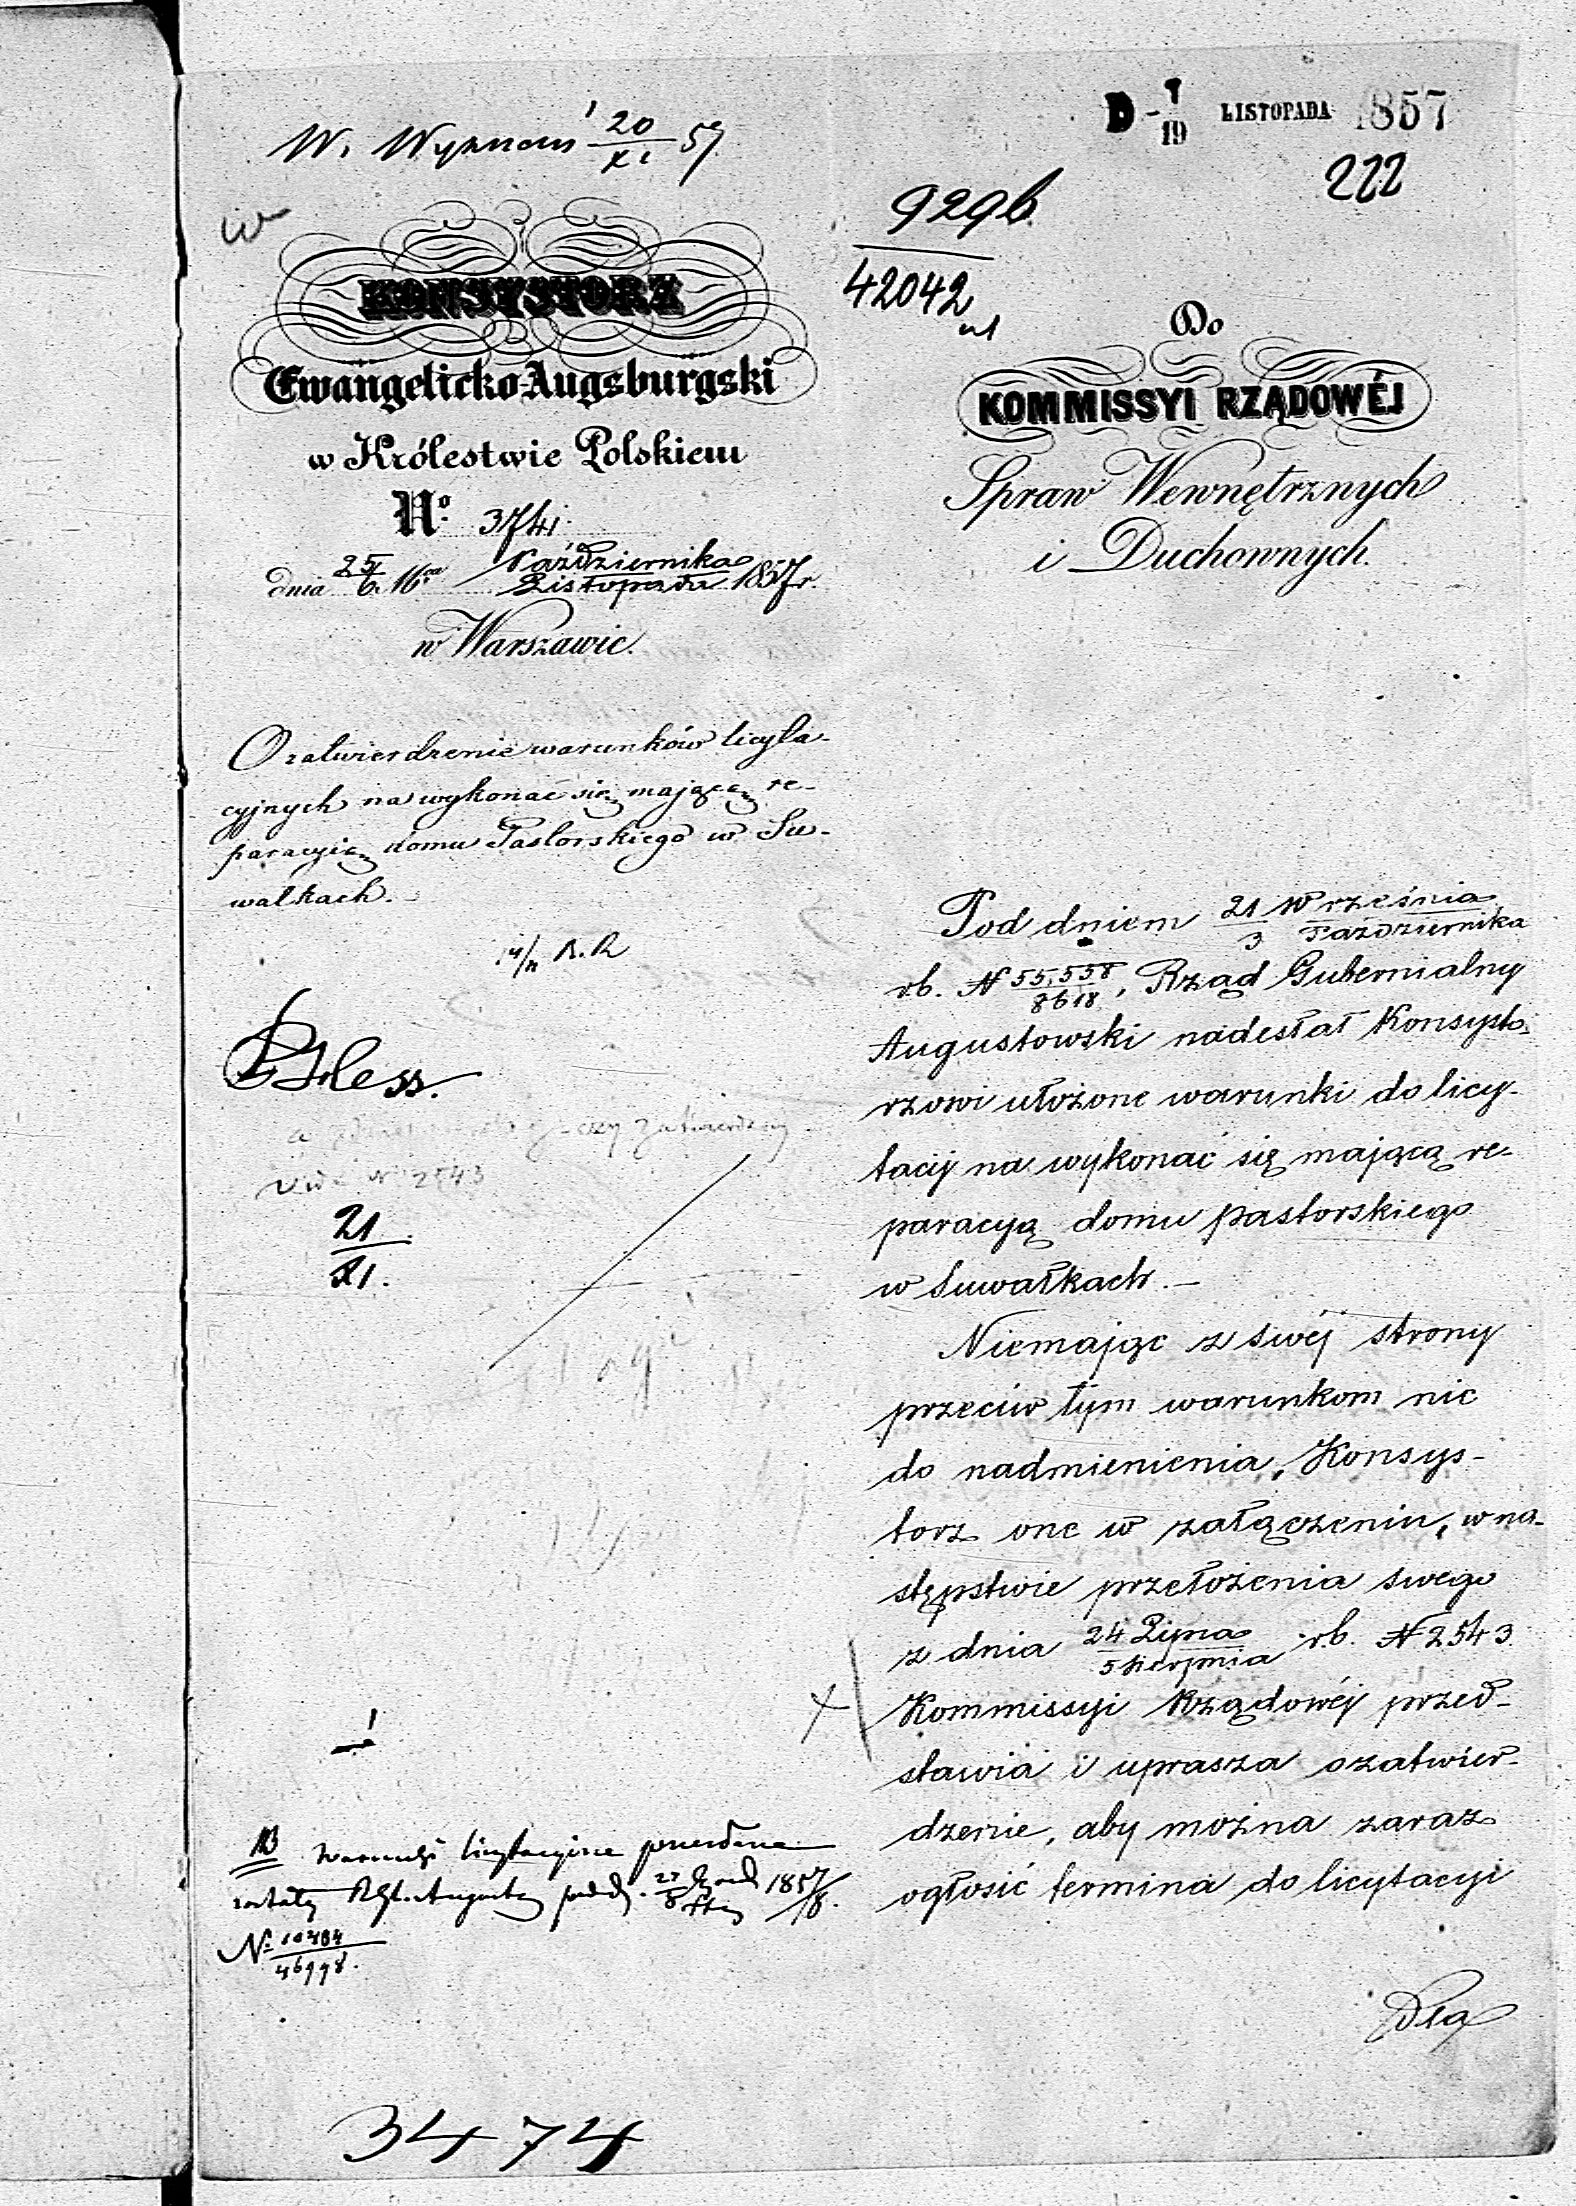 D - 7/19 LISTOPADA 1857
222
W. Wyznań 20/XI 57
9296
42042
KONSYSTORZ
Ewangelicko-Augsburgski
w Królestwie Polskiem
No. 3741.
dnia 25/6. 16 Października/Listopada 1857 r.
w Warszawie.
Do
KOMMISSYI RZĄDOWÉJ
Spraw Wewnętrznych
i Duchownych.
O zatwierdzenie warunków licyta-
cyjnych na wykonać się mającą re-
paracyią domu Pastorskiego w Su-
wałkach.
vide N 2543
21
XI.
Pod dniem 21 Września/3 Października
rb. N 55,558/8618, Rząd Gubernialny
Augustowski nadesłał Konsysto-
rzowi ułożone warunki do licy-
tacij na wykonać się mającą re-
paracyą domu pastorskiego
w Suwałkach. —
Niemając z swéj strony
przeciw tym warunkom nic
do nadmienienia, Konsys-
torz one w załączeniu, w na-
stępstwie przełożenia swego
z dnia 24 Lipca/5 Sierpnia rb. N 2543
Kommissyi Rządowéj przed-
stawia i uprasza o zatwier-
dzenie, aby można zaraz
ogłosić termina do licytacyi
Dla
NB warunki licytacyjne przesłane
zostały 1857/8.
No 10484/46998.
3474